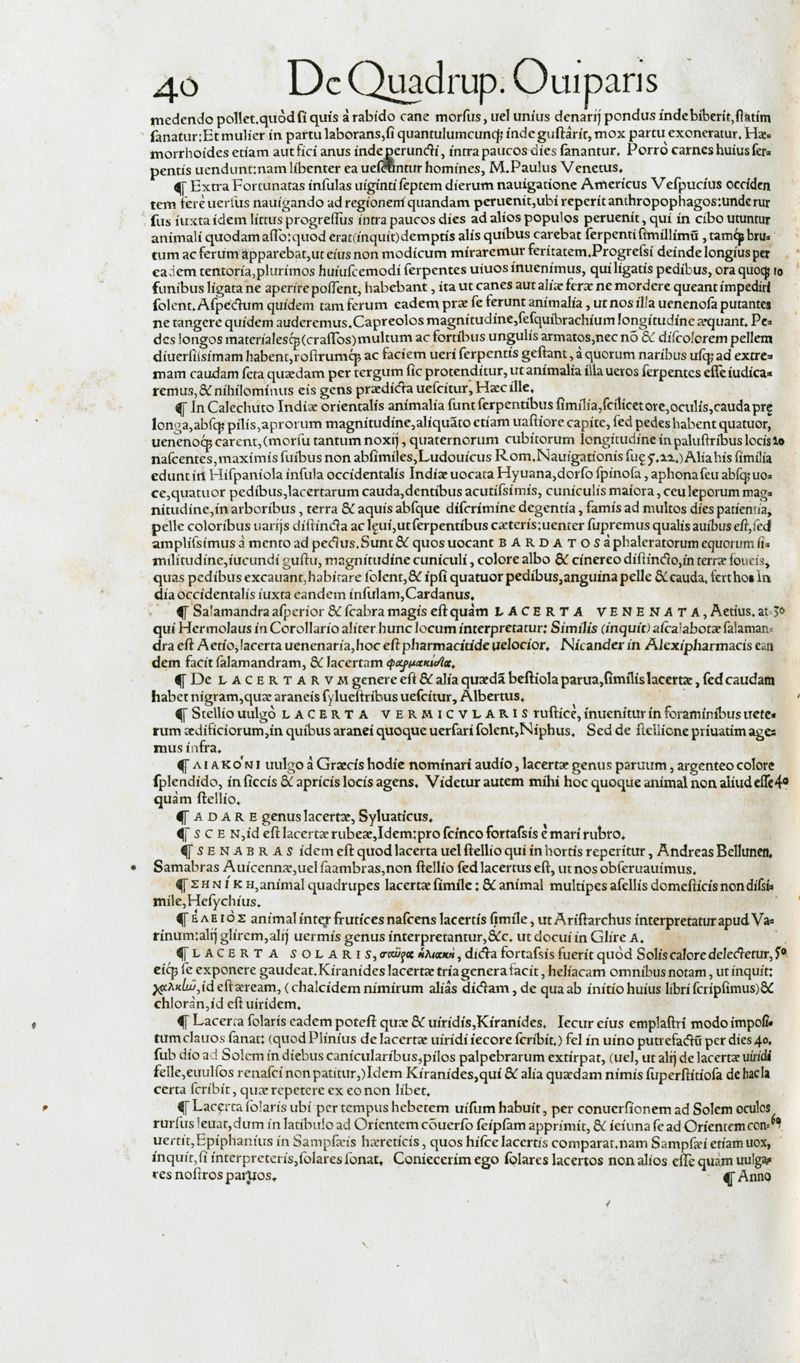 40 De Quadrup. Ouiparis
medendo pollet.quòd ſi quis à rabido cane morſus, uel unius denarij pondus inde biberit,ſtatim
ſanatur:Et mulier in partu laborans,ſi quantulumcunq; inde guſtârit, mox partu exoneratur. Hæ⸗
morrhoides etiam aut fici anus inde peruncti, intra paucos dies ſanantur. Porrò carnes huius ſer⸗
pentis uendunt:nam libenter ea ueſcuntur homines, M.Paulus Venetus.
¶ Extra Fortunatas inſulas uiginti ſeptem dierum nauigatione Americus Veſpucius occiden
tem ferè uerſus nauigando ad regionem quandam peruenit,ubi reperit anthropophagos:unde rur
ſus iuxta idem littus progreſſus intra paucos dies ad alios populos peruenit, qui in cibo utuntur
animali quodam aſſo:quod erat(inquit)demptis alis quibus carebat ſerpenti ſimillimū, tamq; bru⸗
tum ac ferum apparebat,ut eius non modicum miraremur feritatem.Progreſsi deinde longius per
eadem tentoria,plurimos huiuſcemodi ſerpentes uiuos inuenimus, qui ligatis pedibus, ora quoq; 10
funibus ligata ne aperire poſſent, habebant, ita ut canes aut aliæ feræ ne mordere queant impediri
ſolent.Aſpectum quidem tam ferum eadem præ ſe ferunt animalia, ut nos illa uenenoſa putantes
ne tangere quidem auderemus.Capreolos magnitudine,ſeſquibrachium longitudine æquant. Pe⸗
des longos materialesq;(craſſos)multum ac fortibus ungulis armatos,nec nō & diſcolorem pellem
diuerſiſsimam habent,roſtrumq; ac faciem ueri ſerpentis geſtant, à quorum naribus uſq; ad extre⸗
mam caudam ſeta quædam per tergum ſic protenditur, ut animalia illa ueros ſerpentes eſſe iudica⸗
remus,& nihilominus eis gens prædicta ueſcitur, Hæc ille.
¶ In Calechuto Indiæ orientalis animalia ſunt ſerpentibus ſimilia,ſcilicet ore,oculis,cauda prę
longa,abſq; pilis,aprorum magnitudine,aliquāto etiam uaſtiore capite, ſed pedes habent quatuor,
uenenoq; carent,(morſu tantum noxij, quaternorum cubitorum longitudine in paluſtribus locis 20
naſcentes,maximis ſuibus non abſimiles,Ludouicus Rom.Nauigationis ſuę 5.22.)Alia his ſimilia
edunt in Hiſpaniola inſula occidentalis Indiæ uocata Hyuana,dorſo ſpinoſa, aphona ſeu abſq; uo⸗
ce,quatuor pedibus,lacertarum cauda,dentibus acutiſsimis, cuniculis maiora, ceu leporum mag⸗
nitudine,in arboribus, terra & aquis abſque diſcrimine degentia, famis ad multos dies patientia,
pelle coloribus uarijs diſtincta ac lęui,ut ſerpentibus cæteris:uenter ſupremus qualis auibus eſt,ſed
ampliſsimus à mento ad pectus.Sunt & quos uocant BARDATOS à phaleratorum equorum ſi⸗
militudine,iucundi guſtu, magnitudine cuniculi, colore albo & cinereo diſtincto,in terræ foueis,
quas pedibus excauant,habitare ſolent,& ipſi quatuor pedibus,anguina pelle & cauda. fert hos In
dia occidentalis iuxta eandem inſulam,Cardanus.
¶ Salamandra aſperior & ſcabra magis eſt quàm LACERTA VENENATA, Aetius. at 30
qui Hermolaus in Corollario aliter hunc locum interpretatur: Similis (inquit) aſcalabotæ ſalaman⸗
dra eſt Aetio,lacerta uenenaria,hoc eſt pharmacitide uelocior. Nicander in Alexipharmacis ean
dem facit ſalamandram, & lacertam φαρμακίδα.
¶ De LACERTARVM genere eſt & alia quædā beſtiola parua,ſimilis lacertæ, ſed caudam
habet nigram,quæ araneis ſylueſtribus ueſcitur, Albertus.
¶ Stellio uulgò LACERTA VERMICVLARIS ruſticè, inuenitur in foraminibus uete⸗
rum ædificiorum,in quibus aranei quoque uerſari ſolent,Niphus. Sed de ſtellione priuatim age⸗
mus infra.
¶ ΛΙΑΚΌΝΙ uulgo à Græcis hodie nominari audio, lacertæ genus paruum, argenteo colore
ſplendido, in ſiccis & apricis locis agens. Videtur autem mihi hoc quoque animal non aliud eſſe 40
quàm ſtellio.
¶ ADARE genus lacertæ, Syluaticus.
¶ SCEN,id eſt lacertæ rubeæ,Idem:pro ſcinco fortaſsis è mari rubro.
¶ SENABRAS idem eſt quod lacerta uel ſtellio qui in hortis reperitur, Andreas Bellunen.
Samabras Auicennæ,uel ſaambras,non ſtellio ſed lacertus eſt, ut nos obſeruauimus.
¶ ΣΗΝΊΚΗ,animal quadrupes lacertæ ſimile: & animal multipes aſellis domeſticis non diſsi⸗
mile,Heſychius.
¶ ἘΛΕΙΌΣ animal inter frutices naſcens lacertis ſimile, ut Ariſtarchus interpretatur apud Va⸗
rinum:alij glirem,alij uermis genus interpretantur,&c. ut docui in Glire A.
¶ LACERTA SOLARIS,σαῦρα ἡλιακή, dicta fortaſsis fuerit quòd Solis calore delectetur, 50
eiq; ſe exponere gaudeat.Kiranides lacertæ tria genera facit, heliacam omnibus notam, ut inquit:
χαλκῆν,id eſt æream, (chalcidem nimirum aliâs dictam, de qua ab initio huius libri ſcripſimus)&
chloràn,id eſt uiridem.
¶ Lacerta ſolaris eadem poteſt quæ & uiridis,Kiranides. Iecur eius emplaſtri modo impoſi⸗
tum clauos ſanat: (quod Plinius de lacertæ uiridi iecore ſcribit.) fel in uino putrefactū per dies 40.
ſub dio ad Solem in diebus canicularibus,pilos palpebrarum extirpat, (uel, ut alij de lacertæ uiridi
felle,euulſos renaſci non patitur,)Idem Kiranides,qui & alia quædam nimis ſuperſtitioſa de hac la
certa ſcribit, quæ repetere ex eo non libet.
¶ Lacerta ſolaris ubi per tempus hebetem uiſum habuit, per conuerſionem ad Solem oculos
rurſus leuat,dum in latibulo ad Orientem cōuerſo ſeipſam apprimit, & ieiuna ſe ad Orientem con⸗ 60
uertit,Epiphanius in Sampſæis hæreticis, quos hiſce lacertis comparat.nam Sampſæi etiam uox,
inquit,ſi interpreteris,ſolares ſonat. Coniecerim ego ſolares lacertos non alios eſſe quàm uulga⸗
res noſtros paruos. ¶ Anno